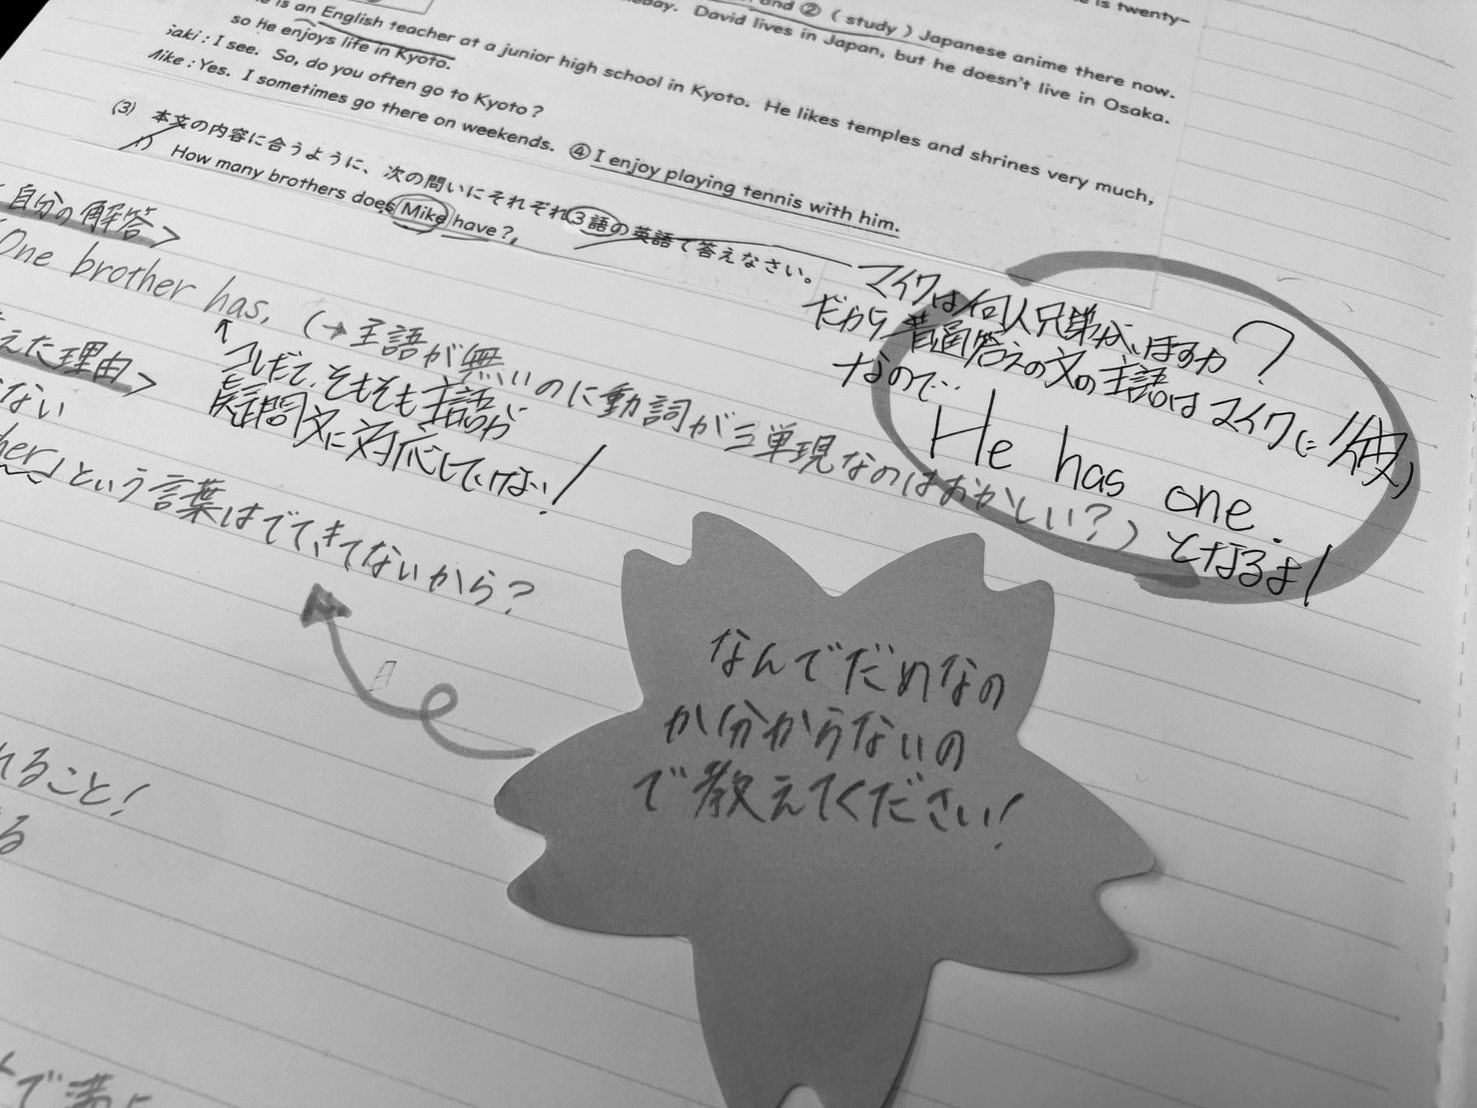 is twenty-
and ② ( study ) Japanese anime there now.
David lives in Japan, but he doesn't live in Osaka.
is an English teacher at a junior high school in Kyoto. He likes temples and shrines very much,
so he enjoys life in Kyoto.
aki : I see. So, do you often go to Kyoto?
Mike : Yes. I sometimes go there on weekends. ④ I enjoy playing tennis with him.
(3) 本文の内容に合うように、次の問いにそれぞれ3語の英語で答えなさい。
1) How many brothers does Mike have?
自分の解答>
One brother has,
(→主語が無いのに動詞が三単現なのはおかしい?)
えた理由>
コレだと、そもそも主語が
疑問文に対応していない!
ない
her」という言葉はでてきてないから?
マイクは何人兄弟がいますか?
だから普通答えの文の主語はマイクに(彼)
なので…
He has one.
となるよ!
なんでだめなの
か分からないの
で教えてください!
れること!
る